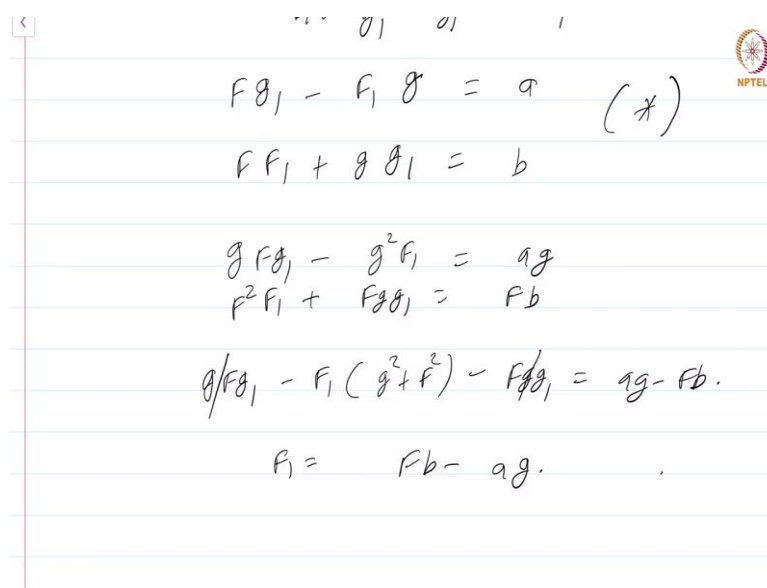 F g₁ - F₁ g = a (*)
NPTEL
F F₁ + g g₁ = b
g F g₁ - g² F₁ = ag
F² F₁ + F g g₁ = Fb
g F g₁ - F₁ ( g² + F² ) - F g g₁ = ag - Fb.
F₁ = Fb - ag.